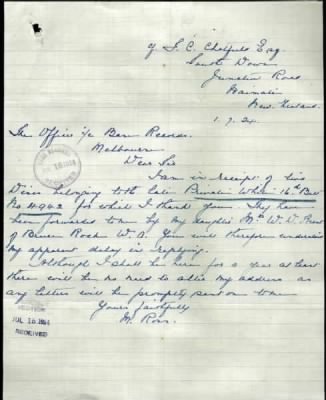 ℅ T. C. Esq.
South Down
Junction Road
New Zealand.
1.7.24
The Officer i/c Base Records
Melbourne
Dear Sir
I am in receipt of two
Discs belonging to the late Private White 16th Batt
No 4942 for which I thank you. They have
been forwarded to me by my daughter Mrs W. D.
of Rock W. A. You will therefore understand
my apparent delay in replying.
Although I shall be here for a year at least
there will be no need to alter my address as
any letters will be promptly sent on to me
Yours faithfully
M. Ross
JUL 16 1924
RECEIVED